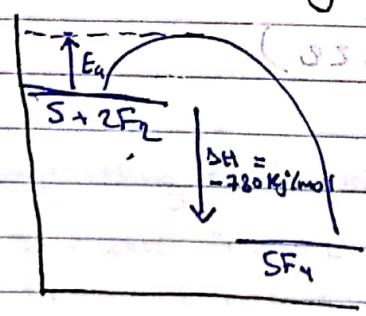 Ea
S + 2F2
ΔH =
-780 Kj/mol
SF4